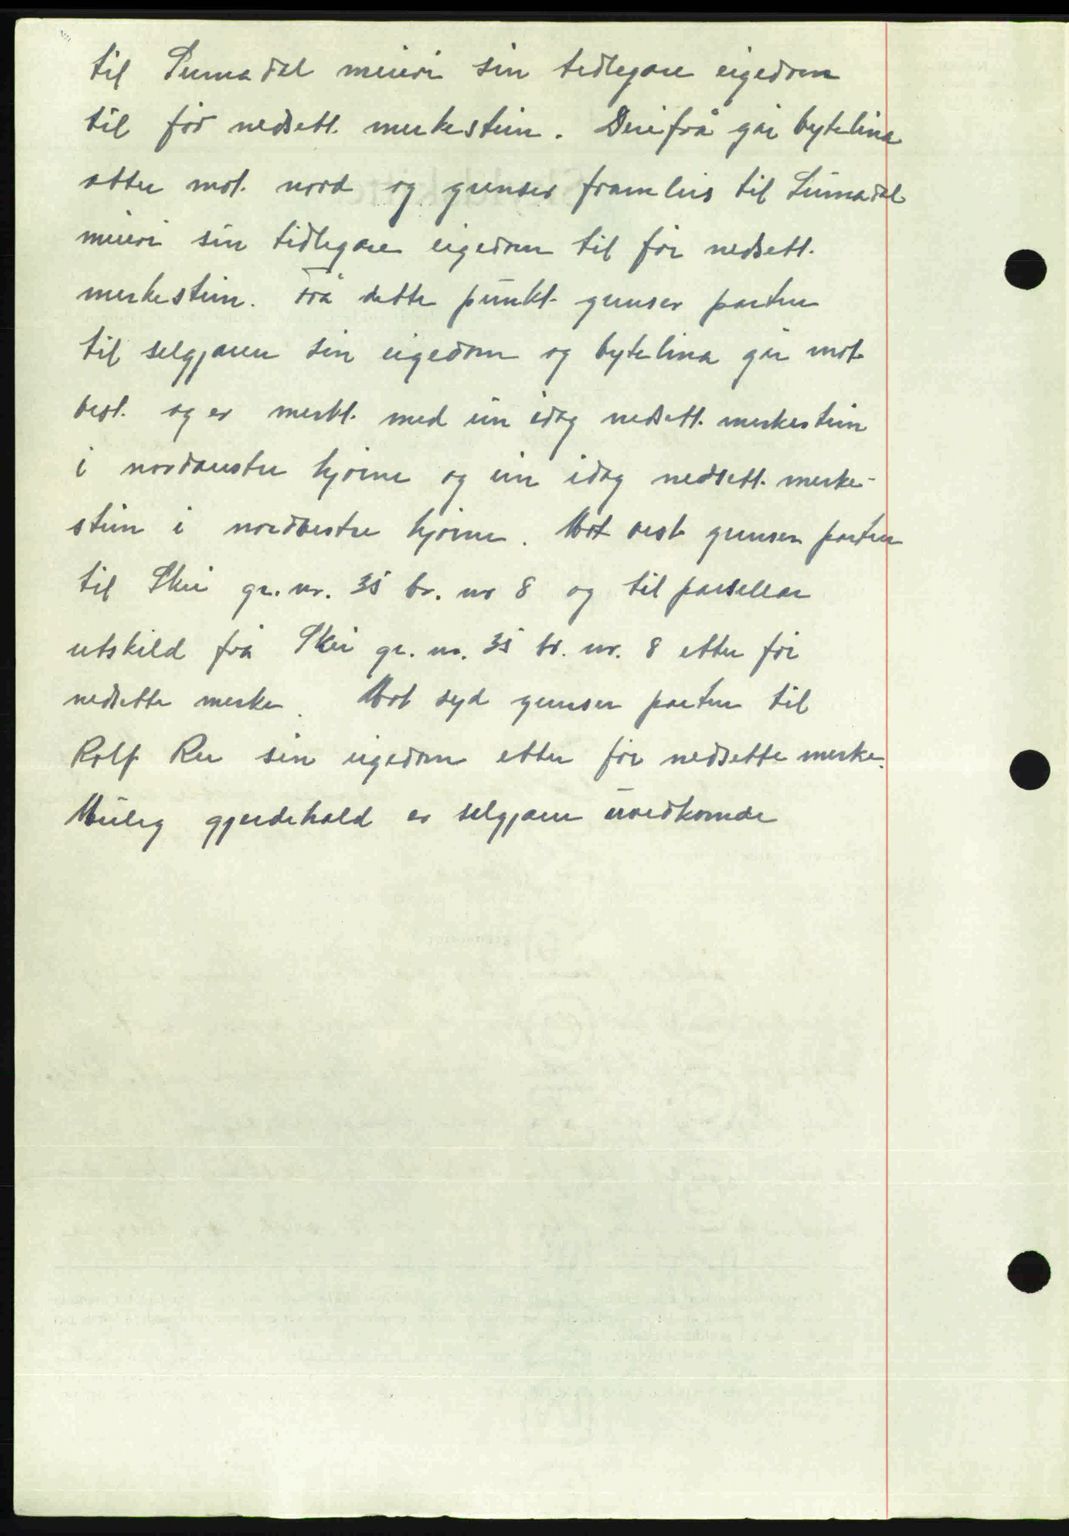 til Surnadal meieri sin tidlegare eigedom
til før nedsett merkestein. Derifrå går bytelina
atter mot nord og grenser framleis til Surnadal
meieri sin tidlegare eigedom til før nedsett
merkestein. Frå dette punkt grenser parten
til selgjaren sin eigedom og bytelina går mot
vest og er merkt med ein idag nedsett merkestein
i nordaustre hjørne og ein idag nedsett merke-
stein i nordvestre hjørne. Mot vest grenser parten
til Skei gr. nr. 35 br. nr 8 og til parsellar
utskild frå Skei gr. nr. 35 br. nr. 8 etter før
nedsette merker. Mot syd grenser parten til
Rolf Ree sin eigedom etter før nedsette merke.
Muleg gjerdehald er selgjaren uvedkomande